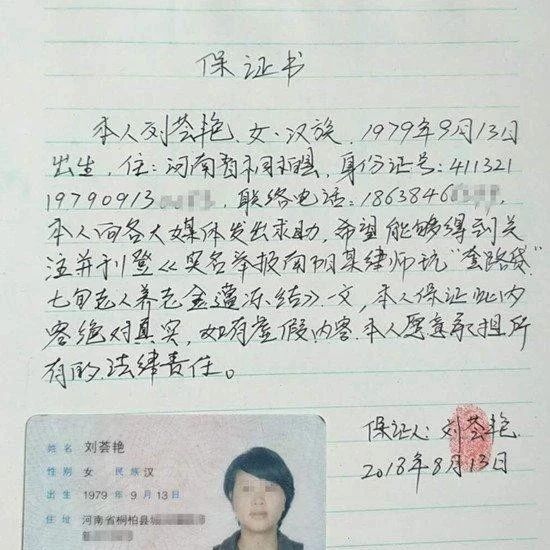 保证书
本人刘荟艳、女、汉族、1979年9月13日
出生，住：河南省桐柏县，身份证号：411321
19790913，联络电话：1863846
本人向各大媒体发出求助，希望能够得到关
注并刊登《实名举报南阳某律师坑"套路贷"
七旬老人养老金遭冻结》一文，本人保证此内
容绝对真实，如有虚假内容.本人愿意承担所
有的法律责任。
保证人：刘荟艳
2018年8月13日
姓名 刘荟艳
性别 女 民族 汉
出生 1979 年 9 月 13 日
住址 河南省桐柏县城